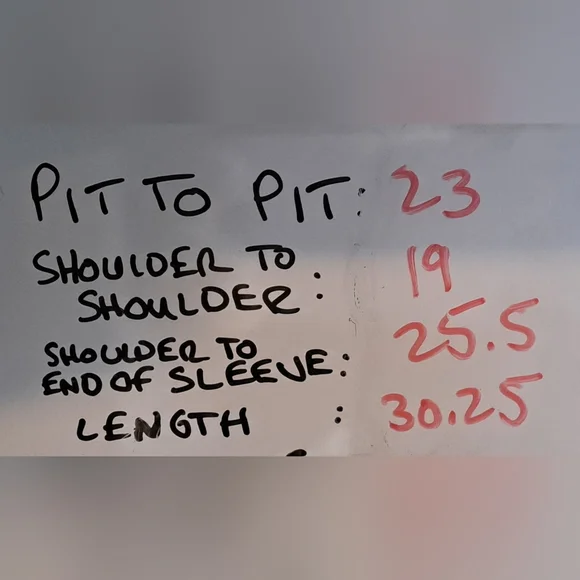 PIT TO PIT: 23
SHOULDER TO
SHOULDER: 19
SHOULDER TO
END OF SLEEVE: 25.5
LENGTH : 30.25